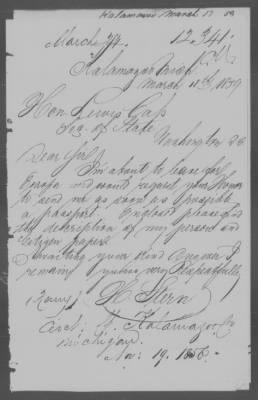 Kalamazoo March 11 59
March 14. 12.341.
Kalamazoo Mich
March 11th, 1859
Hon Lewis Cass
Sec. of State
Washington
Dear Sir!
I'm about to leave for
Europe and would request your Honor
to send me as soon as possible
a passport. Enclosed please find
the description of my person and
Citizen papers.
Awaiting your kind answer I
remain yours very Respectfully
H. Stern
Circt. Ct. Kalamazoo Co
Michigan.
Nov. 19. 1856.